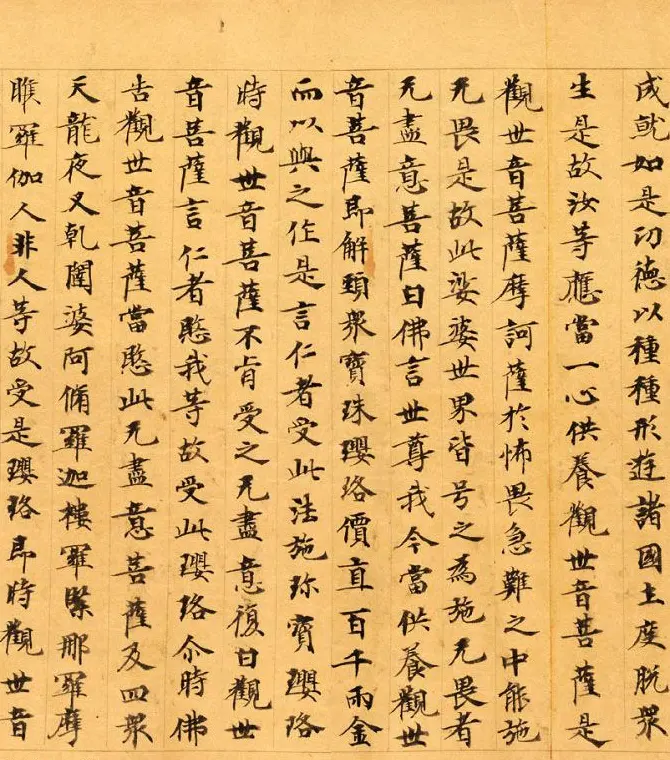 成就如是功德以種種形遊諸國土度脫衆
生是故汝等應當一心供養觀世音菩薩是
觀世音菩薩摩訶薩於怖畏急難之中能施
无畏是故此娑婆世界皆号之為施无畏者
无盡意菩薩白佛言世尊我今當供養觀世
音菩薩即解頸衆寶珠瓔珞價直百千兩金
而以與之作是言仁者受此法施珎寶瓔珞
時觀世音菩薩不肯受之无盡意復白觀世
音菩薩言仁者愍我等故受此瓔珞尒時佛
告觀世音菩薩當愍此无盡意菩薩及四衆
天龍夜叉乹闥婆阿脩羅迦樓羅緊那羅摩
睺羅伽人非人等故受是瓔珞即時觀世音